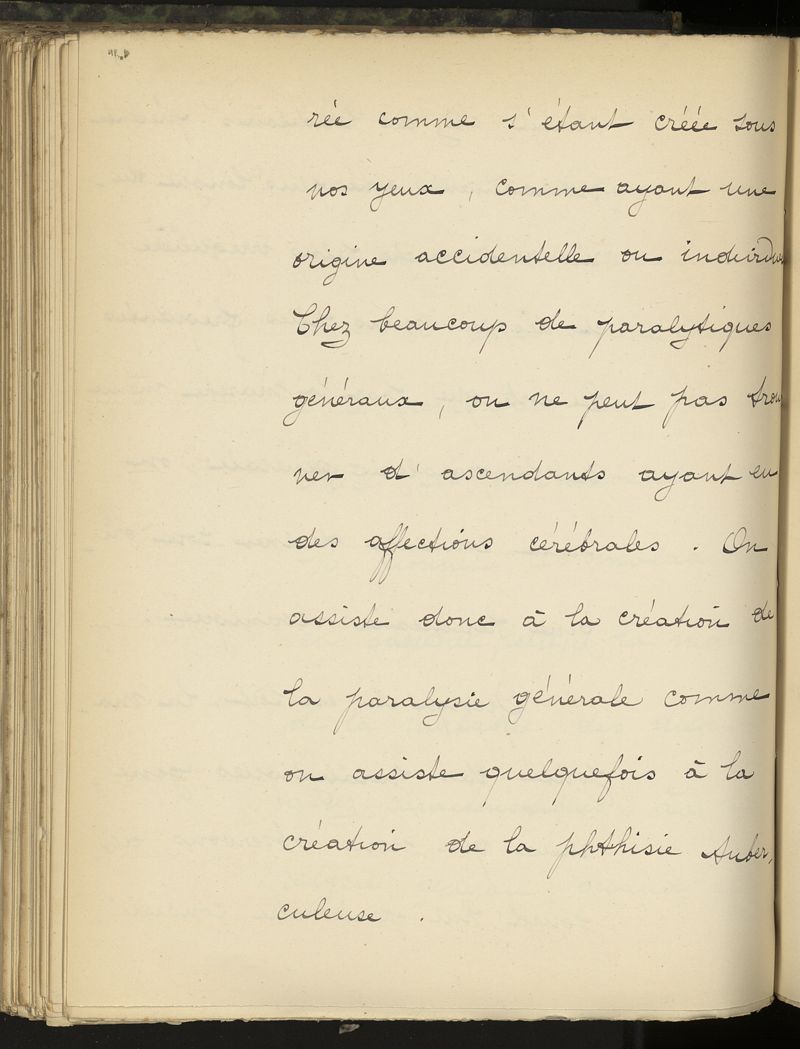 rée comme s'étant créée sous
nos yeux, comme ayant une
origine accidentelle ou individue
Chez beaucoup de paralytiques
généraux, on ne peut pas trou
ver d'ascendants ayant eu
des affections cérébrales. On
assiste donc à la création de
la paralysie générale comme
on assiste quelquefois à la
création de la phthisie tuber,
culeuse.